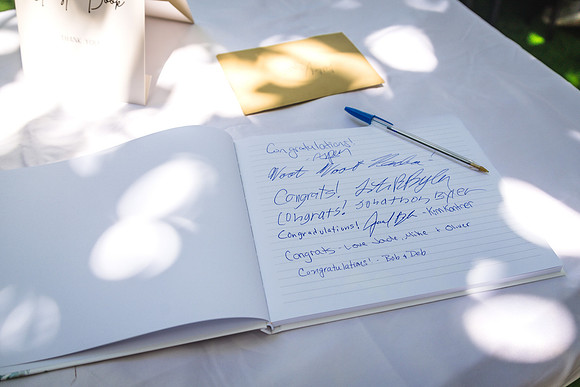 Book
THANK YOU
Congratulations!
Woot Woot
Congrats!
Congrats! Johnathon Byler
Congradulations! - Kim Kantner
Congrats - Love Jacob, Mike + Oliver
Congratulations! - Bob + Deb